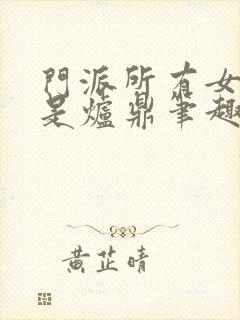 門派所有女
是爐鼎筆趣
黃芷晴